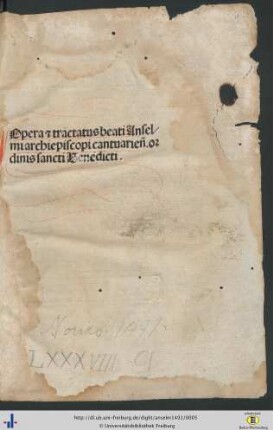 Opera ⁊ tractatus beati Ansel⸗
mi archiepiscopi cantuarien̄. or
dinis sancti Benedicti.
LXXXVIII
http://dl.ub.uni-freiburg.de/diglit/anselm1491/0005
© Universitätsbibliothek Freiburg